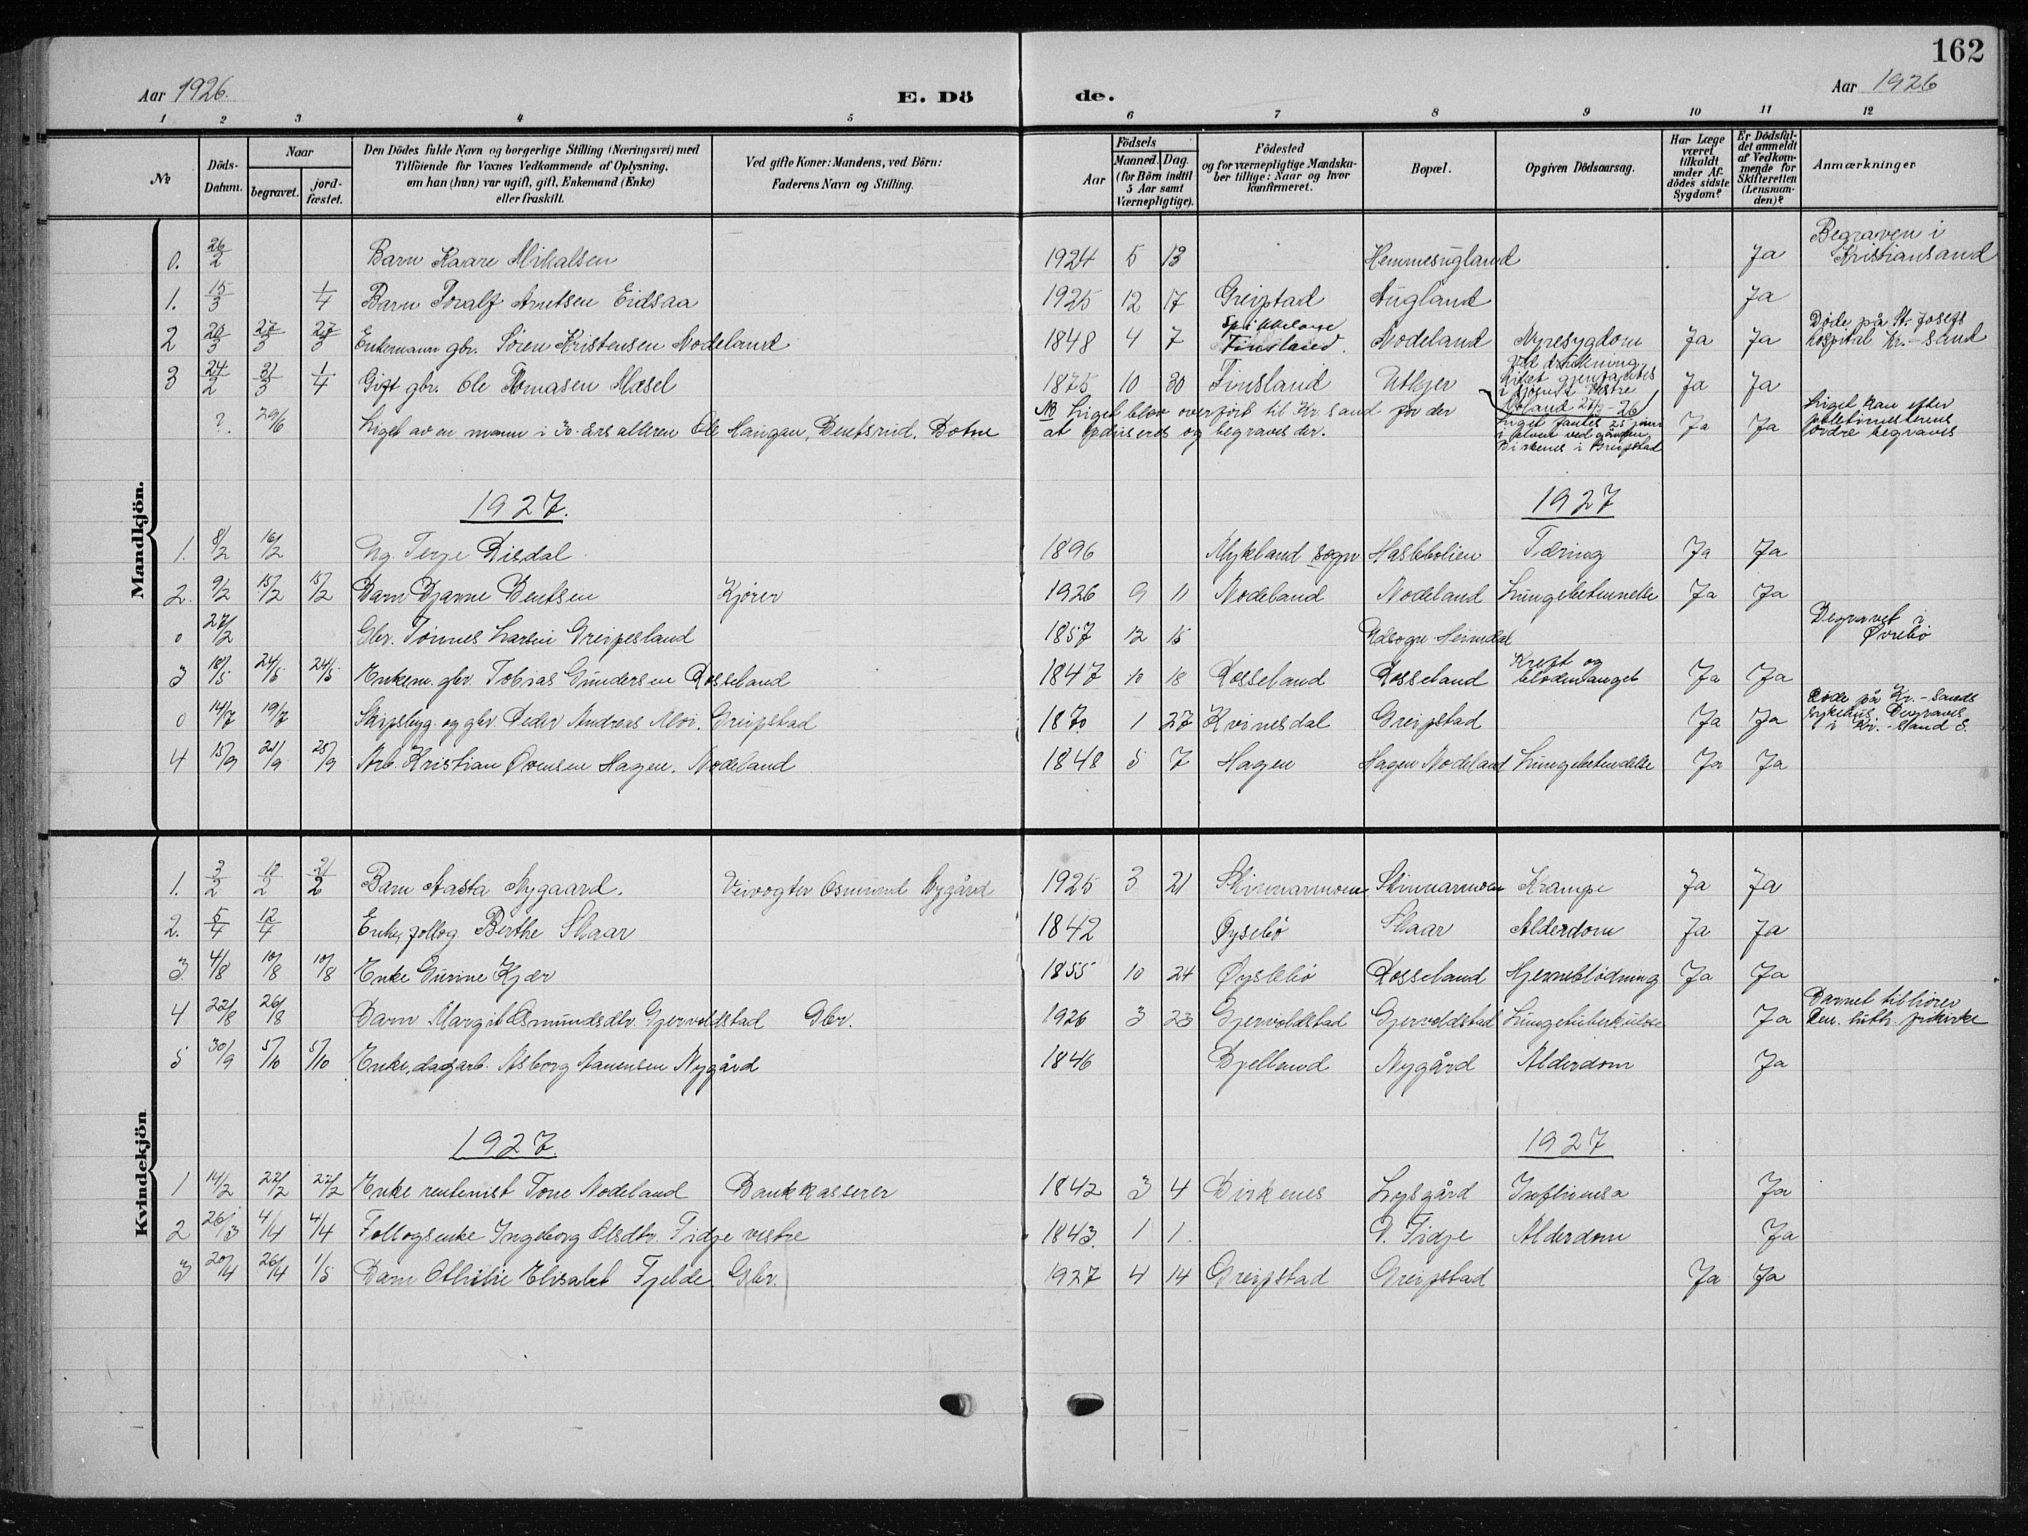 162
Aar 1926.
E. Dö
de.
Aar 1926
1 2 3 4 5 6 7 8 9 10 11 12
No
Döds-
Datum.
Naar
begravet.
jord-
fæstet.
Den Dödes fulde Navn og borgerlige Stilling (Næringsvei) med
Tilföiende for Voxnes Vedkommende af Oplysning,
om han (hun) var ugift, gift, Enkemand (Enke)
eller fraskilt.
Ved gifte Koner: Mandens, ved Börn:
Faderens Navn og Stilling.
Födsels
Aar
Maaned. Dag.
(for Börn indtil
5 Aar samt
Værnepligtige).
Födested
og for værnepligtige Mandska-
ber tillige: Naar og hvor
konfirmeret.
Bopæl.
Opgiven Dödsaarsag.
Har Læge
været
tilkaldt
under Af-
dödes sidste
Sygdom?
Er Dödsfal-
det anmeldt
af Vedkom-
mende for
Skifteretten
(Lensman-
den)?
Anmærkninger
Mandkjön.
0. 26/2 Barn Kaare Mikalsen 1924 5 13 Hemmesugland Ja Begraven i Kristiansand
1. 15/3 1/4 Barn Toralf Arntsen Eidsaa 1925 12 17 Greipstad Augland Ja
2 20/3 27/3 27/3 Enkemann gbr. Sören Kristensen Nodeland 1848 4 7 Finsland. Nodeland Nyresygdom Ja Ja Døde på St. Josefs hospital Kr.-sand
3 24/2 31/3 1/4 Gift gbr. Ole Tomasen Mæsel 1875 10 30 Finsland Utkjer Ved drukning Liket gjenfantes Ja Ja
?. 29/6 Liget av en mann i 30-års alderen Ole Haugan, Bentsrud, Botne NB Liget blev overført til Kr.sand for der at obduseres og begraves der. Liget fantes 25 juni i elven ved gården Birkenes i Greipstad Ja Ja Liget kan efter politimesterens ordre begraves
1927. 1927
1. 8/2 16/2 Ug. Terje Risdal 1896 Mykland sogn Haslebolien Tæring Ja Ja
2. 9/2 15/2 15/2 Barn Bjarne Bentsen Kjører 1926 9 11 Nodeland Nodeland Lungebetennelse Ja Ja
0 27/2 Gbr. Tönnes Larsen Greipesland 1857 12 15 Heimdal Begravet i Øvrebö
3 18/5 24/5 24/5 Enkem. gbr. Tobias Gundersen Rosseland 1847 10 18 Rosseland Rosseland Kreft og blodmangel Ja Ja
0 14/7 19/7 Skipsbyg. og gbr. Peder Andreas Moi. Greipstad 1870 1 27 Kvinesdal Greipstad Ja Ja Døde på Kr.-sands sykehus. Begraves i Kr.-sand S.
4 15/9 21/9 25/9 Arb. Kristian Ovensen Hagen. Nodeland 1848 5 7 Hagen Hagen Nodeland Lungebetendelse Ja Ja
Kvindekjön
1. 3/2 10/2 21/2 Barn Aasta Nygaard. Veivogter Osmund Nygård 1925 3 21 Skinnarmoen Skinnarmoen Krampe Ja Ja
2. 5/4 12/4 Enke, follog Berthe Skaar 1842 Øyslebö Skaar Alderdom Ja Ja
3 4/8 10/8 10/8 Enke Gurine Kjær 1855 10 24 Øyslebö Rosseland Hjerneblödning Ja Ja
4 22/8 26/8 Barn Margit Osmundsdtr. Gjervoldstad Gbr. 1926 3 23 Gjervoldstad Gjervoldstad Lungetuberkulose Ja Barnet tilhører Den. luth. frikirke
5 30/9 5/10 5/10 Enke, dagarb. Asborg Aanensen Nygård 1846 Bjelland Nygård Alderdom Ja
1927. 1927
1 14/2 22/2 22/2 Enke rentenist Tone Nodeland Bankkasserer 1842 3 4 Birkenes Lysgård Influensa Ja
2 26/3 4/4 4/4 Follogsenke Ingeborg Olsdtr. Tidje vestre 1843. 1 1. V. Tidje Alderdom Ja
3 20/4 26/4 1/5 Barn Othilie Elisabet Fjelde Gbr. 1927 4 14 Greipstad Greipstad Ja Ja